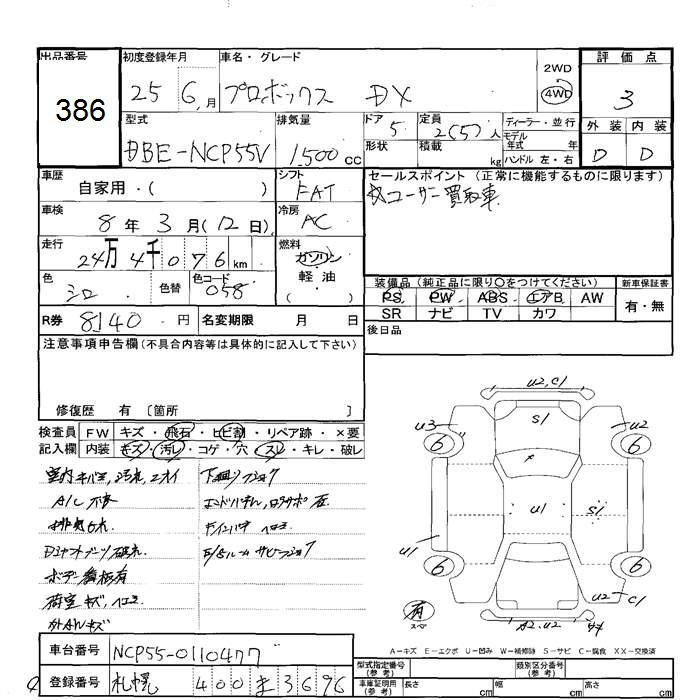 出品番号
386
初度登録年月
25 6 月
車名・グレード
プロボックス DX
2WD
4WD
評価点
3
外装 内装
D D
型式
DBE-NCP55V
排気量
1500 cc
ドア
5
形状
定員
2(5)人
積載
kg
ディーラー・並行
モデル
年式 年
ハンドル 左・右
車歴
自家用・( )
シフト
FAT
車検
8年3月(12日)
冷房
AC
走行
24万4千076km
燃料
ガソリン
軽・油
( )
色
シロ
色替
色コード
058
R券
8140 円
名変期限 月 日
セールスポイント(正常に機能するものに限ります)
ユーザー買取車
装備品(純正品に限り○をつけてください)
PS PW ABS エアB AW
SR ナビ TV カワ
新車保証書
有・無
後日品
注意事項申告欄(不具合内容等は具体的に記入して下さい)
修復歴 有 〔箇所 〕
検査員
記入欄
FW キズ・飛石・ヒビ割・リペア跡・×要
内装 キズ・汚れ・コゲ・穴・スレ・キレ・破レ
A/C不良
下廻りサビ
ボデー看板有
荷室キズ、ヘコミ
外AWキズ
u2,c1
S1
u3
6
u2
6
u1
S1
u1
6
6
u2
c1
A2,u2
有
スペア
A-キズ E-エクボ U-凹み W-補修跡 S-サビ C-腐食 XX-交換済
車台番号
NCP55-0110477
登録番号
札幌 400 ま 3696
型式指定番号
(参考)
類別区分番号
(参考)
車庫証明用
(参考)
長さ cm
幅 cm
高さ cm